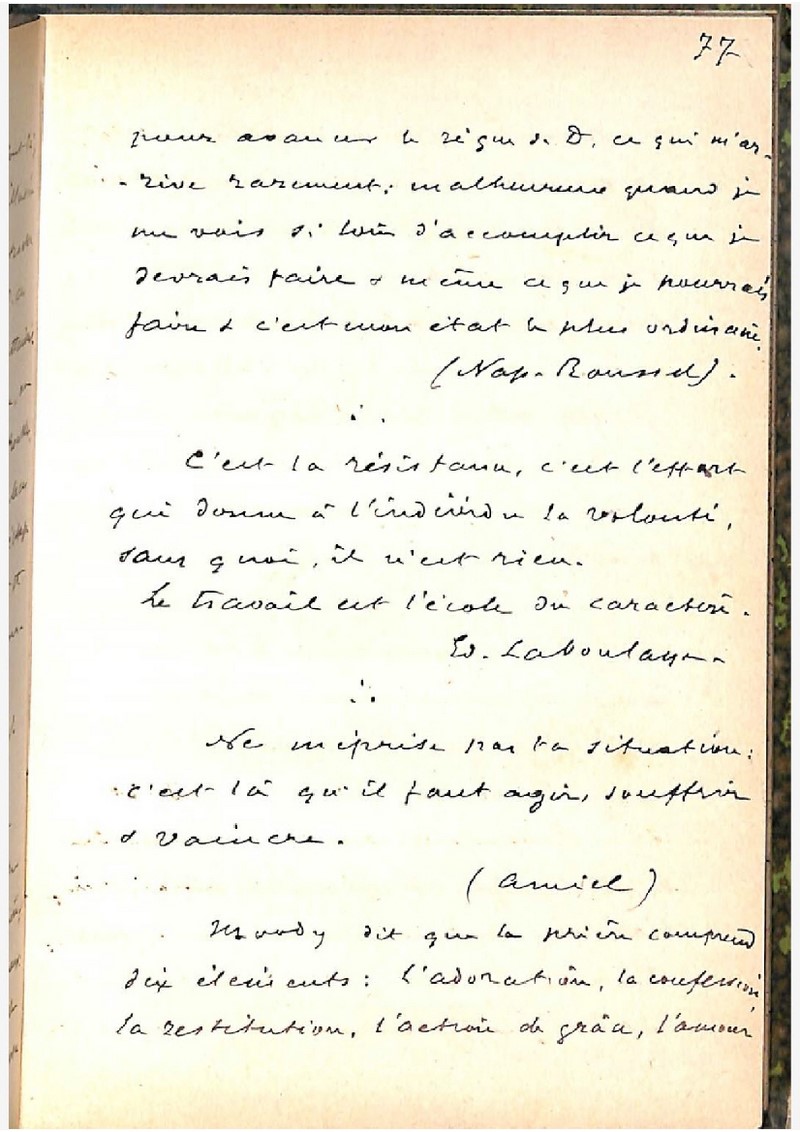 77
pour avancer le règne de D. ce qui m'ar-
-rive rarement; malheureuse quand je
me vois si loin d'accomplir ce que je
devrais faire & même ce que je pourrais
faire & c'est mon état le plus ordinaire.
(Nap. Roussel).
C'est la résistance, c'est l'effort
qui donne à l'individu la volonté,
sans quoi, il n'est rien.
Le travail est l'école du caractère.
Ed. Laboulaye
Ne méprise pas ta situation:
c'est là qu'il faut agir, souffrir
& vaincre.
(Amiel)
Moody dit que la prière comprend
dix éléments: l'adoration, la confession,
la restitution, l'action de grâce, l'amour